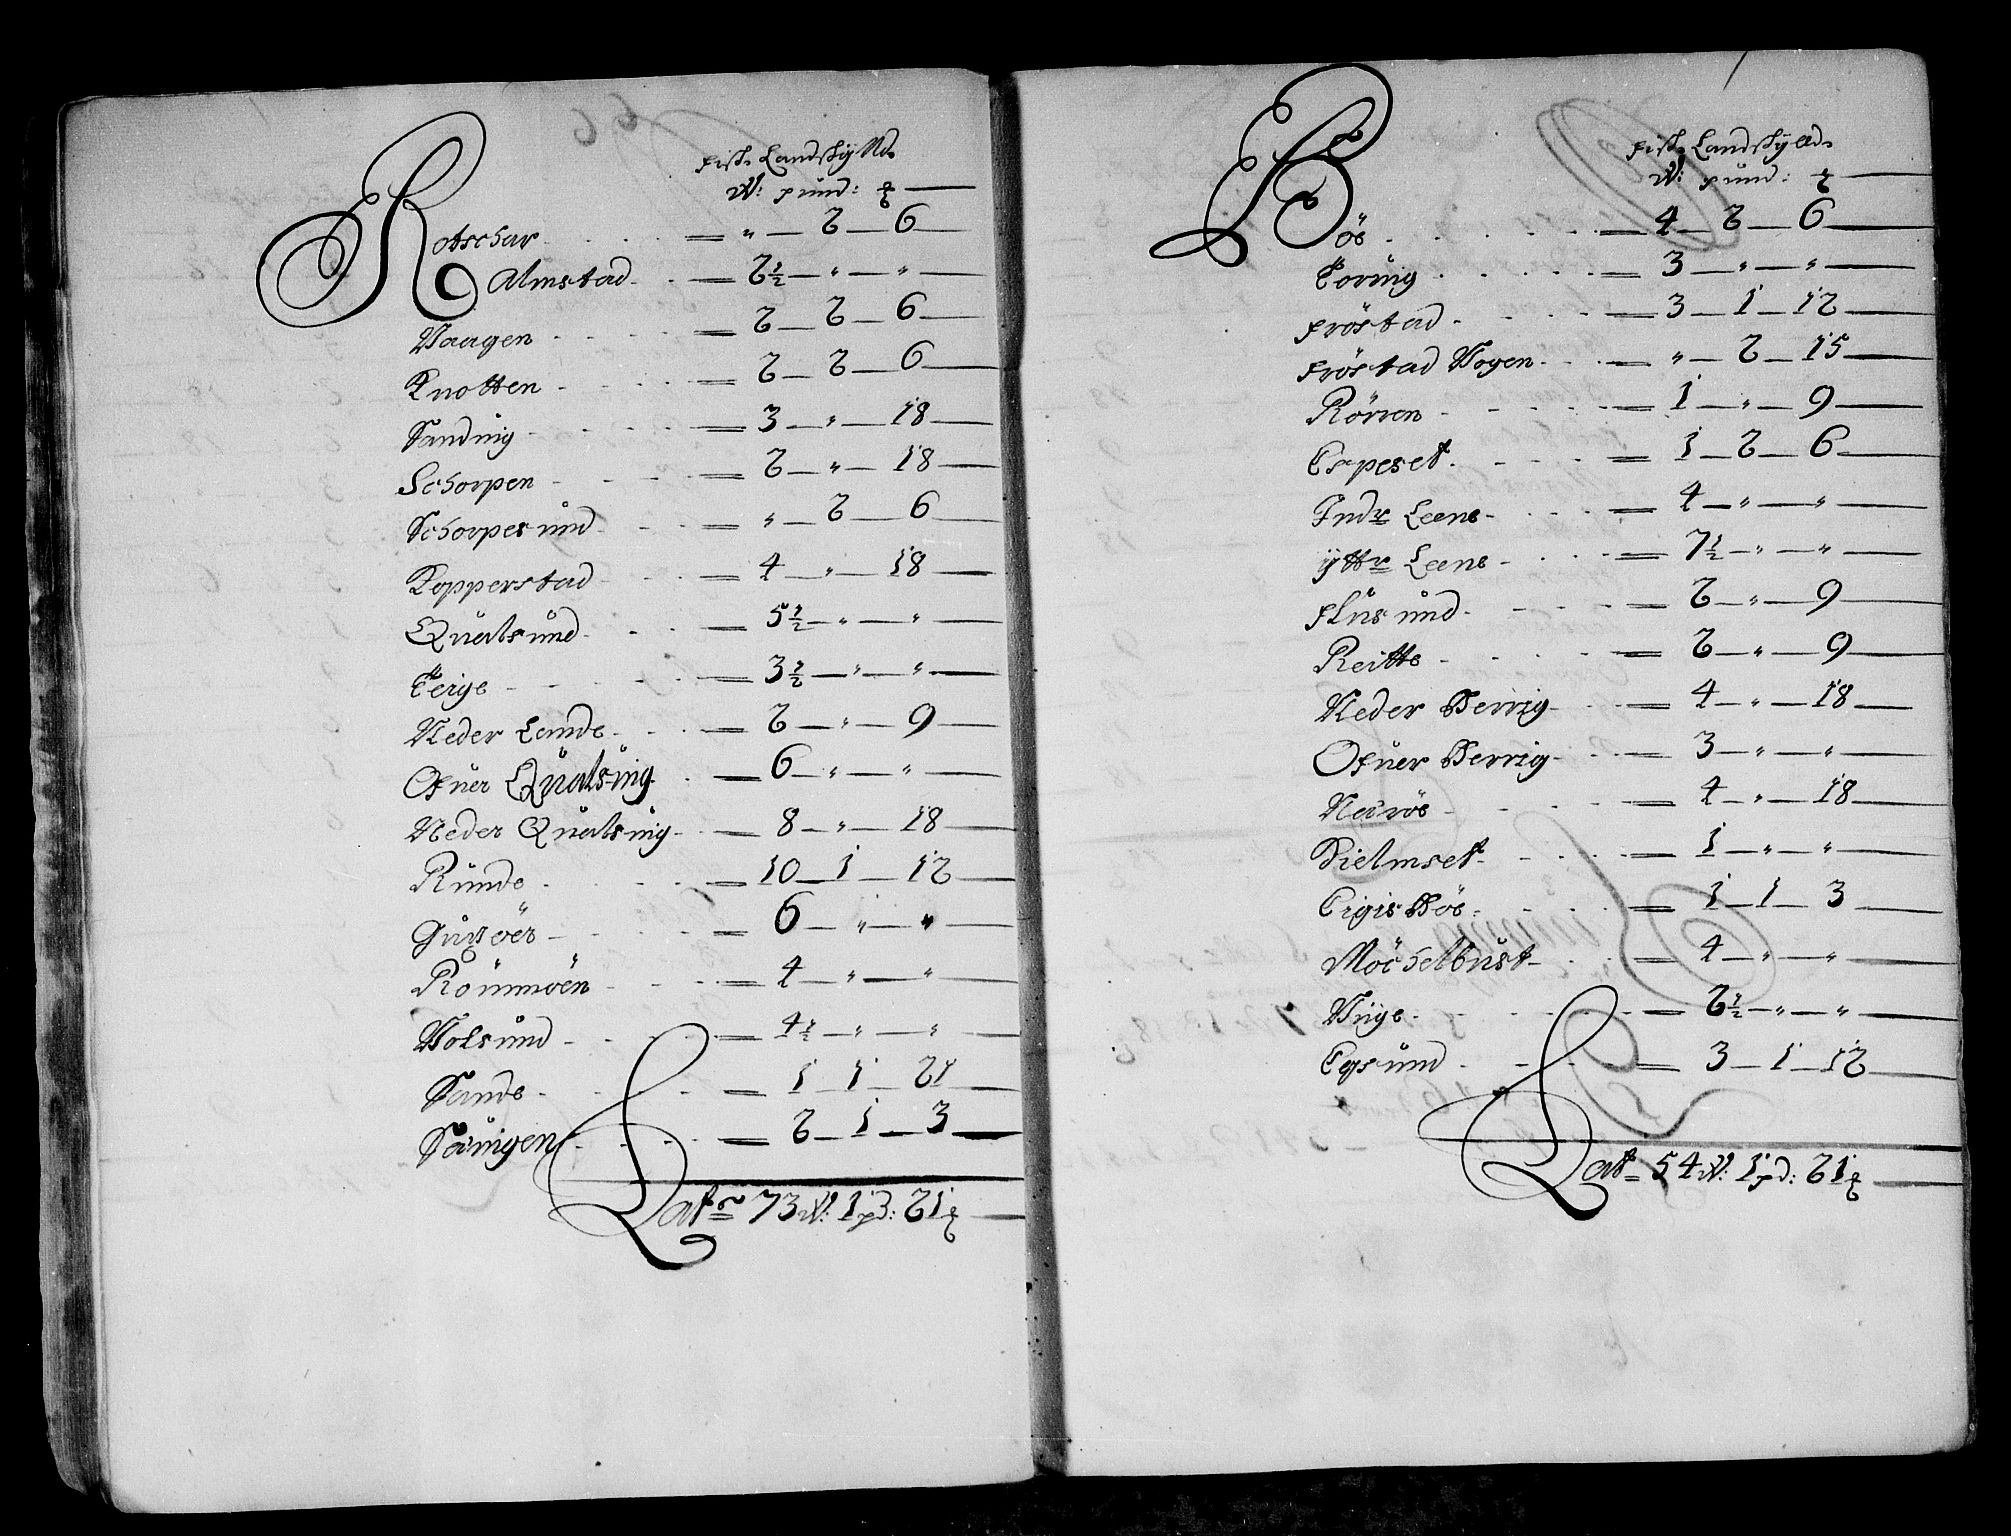 Fisk Landskÿlld
W: pund: ℔
Rotschar — " — 2 — 6
Almstad — 2½ — " — "
Waagen — 2 — 2 — 6
Knotten — 2 — 2 — 6
Sanduig — 3 — " — 18
Schorpen — 2 — " — 18
Schorpesund — " — 2 — 6
Kopperstad — 4 — " — 18
Qualsund — 5½ — " — "
Teige — 3½ — " — "
Neder Lande — 2 — " — 9
Ofuer Qualsuig — 6 — " — "
Neder Qualsuig — 8 — " — 18
Runde — 10 — 1 — 12
— 6 — " — "
Römmöen — 4 — " — "
Wolsund — 4½ — " — "
Sande — 1 — 1 — 21
Säuigen — 2 — 1 — 3
Lat 73 W: 1 pd: 21 ℔
Fisk Landskÿlld
W: pund: ℔
Böe — 4 — 2 — 6
Toruig — 3 — " — "
Fröstad — 3 — 1 — 12
Fröstad Wogen — " — 2 — 15
Rörren — 1 — " — 9
Espeset — 1 — 2 — 6
Indr Leene — 4 — " — "
ÿttr Leene — 7½ — " — "
Flusund — 2 — " — 9
Reitte — 2 — " — 9
Neder Berrig — 4 — " — 18
Ofuer Berrig — 3 — " — "
Neröe — 4 — " — 18
Kielmset — 1 — " — "
Eigis Böe — 1 — 1 — 3
Möchelbust — 4 — " — "
Wiige — 2½ — " — "
Egsund — 3 — 1 — 12
Lat 54 W: 1 pd: 21 ℔